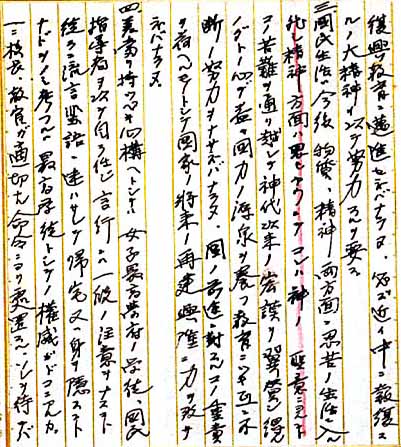 復興教育ニ邁進セネバナラヌ 必ズ近イ中ニ報復ス
ルノ大精神ヲ以テ努力スルヲ要ス
三、国民生活ハ今後物質、精神両方面ニ 苦ノ生活
然シ精神方面ハ思ヒヤウ一ツ コレハ神ノ 意
コノ苦難ヲ通リ越シテ神代以来ノ宏謨ヲ翼賛シ得ル
国力ノ源泉ヲ養フ教育ニ 不
断ノ努力ヲナサネバナラヌ 国ノ前途ニ対スルコノ重責
ヲ荷ヘルモノトシテ国家ノ将来ノ再建興隆ニ力ヲ致サ
ネバナラヌ
四、 持ツベキ心構ヘトシテハ 女子最高学府ノ学徒、国民
指導者ヲ以テ自ラ任ジ言行ニハ一般ノ注意ヲナスコト
徒ラニ流言蜚語ニ迷ハサレテ帰宅又ハ身ヲ隠スコト
最高学徒トシテノ権威ガドコニアルカ
一、校長、教官ガ適切ナル命令ニヨリ処置スルコトヲ待ツ